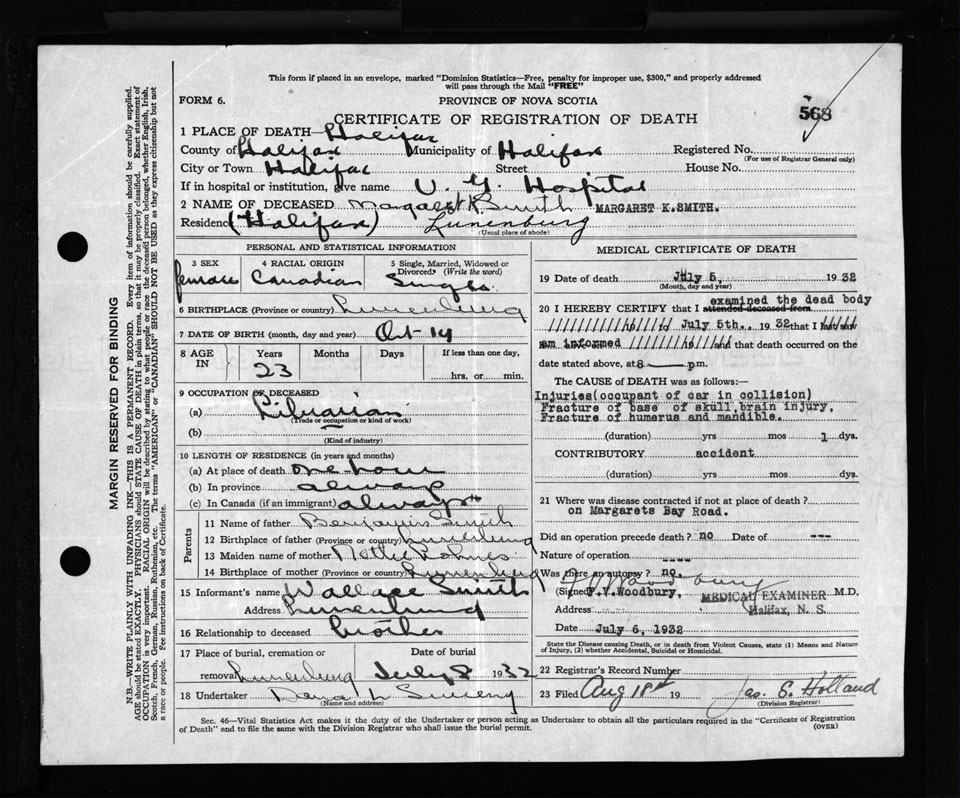 This form if placed in an envelope, marked "Dominion Statistics—Free, penalty for improper use, $300," and properly addressed
will pass through the Mail "FREE"
FORM 6.
PROVINCE OF NOVA SCOTIA
568
CERTIFICATE OF REGISTRATION OF DEATH
1 PLACE OF DEATH—Halifax
County of Halifax Municipality of Halifax Registered No.
(For use of Registrar General only)
City or Town Halifax Street House No.
If in hospital or institution, give name V. G. Hospital
2 NAME OF DECEASED Margaret K Smith MARGARET K.SMITH.
Residence (Halifax) Lunenburg
(Usual place of abode)
PERSONAL AND STATISTICAL INFORMATION
3 SEX female
4 RACIAL ORIGIN Canadian
5 Single, Married, Widowed or Divorced (Write the word) Single
6 BIRTHPLACE (Province or country) Lunenburg
7 DATE OF BIRTH (month, day and year) Oct 14
8 AGE IN Years 23 Months Days If less than one day,
hrs. or min.
9 OCCUPATION OF DECEASED
(a) Librarian
(Trade or occupation or kind of work)
(b)
(Kind of industry)
10 LENGTH OF RESIDENCE (in years and months)
(a) At place of death one hour
(b) In province always
(c) In Canada (if an immigrant) always
Parents
11 Name of father Benjamin Smith
12 Birthplace of father (Province or country) Lunenburg
13 Maiden name of mother Nettie
14 Birthplace of mother (Province or country) Lunenburg
15 Informant's name Wallace Smith
Address Lunenburg
16 Relationship to deceased brother
17 Place of burial, cremation or removal Lunenburg Date of burial July 8 1932
18 Undertaker
(Name and address)
MEDICAL CERTIFICATE OF DEATH
19 Date of death July 5, 1932
(Month, day and year)
20 I HEREBY CERTIFY that I attended deceased from examined the dead body
July 5th.. 1932 that I last saw
am informed and that death occurred on the
date stated above, at 8 pm.
The CAUSE of DEATH was as follows:—
Injuries(occupant of car in collision)
Fracture of base of skull,brain injury,
Fracture of humerus and mandible.
(duration) yrs mos 1 dys.
CONTRIBUTORY accident
(duration) yrs mos dys.
21 Where was disease contracted if not at place of death?
on Margarets Bay Road.
Did an operation precede death? no Date of ---
Nature of operation ----
Was there an autopsy? no.
(Signed) F.V.Woodbury, MEDICAL EXAMINER M.D.
Address Halifax, N. S.
Date July 6, 1932
State the Disease causing Death, or in death from Violent Causes, state (1) Means and Nature
of Injury, (2) whether Accidental, Suicidal or Homicidal.
22 Registrar's Record Number
23 Filed Aug 18th 19 Jas. S. Holland
(Division Registrar)
Sec. 46—Vital Statistics Act makes it the duty of the Undertaker or person acting as Undertaker to obtain all the particulars required in the "Certificate of Registration
of Death" and to file the same with the Division Registrar who shall issue the burial permit.
(OVER)
MARGIN RESERVED FOR BINDING
N.B.—WRITE PLAINLY WITH UNFADING INK—THIS IS A PERMANENT RECORD. Every item of information should be carefully supplied.
AGE should be stated EXACTLY. PHYSICIANS should STATE CAUSE OF DEATH in plain terms, so that it may be properly classified. Exact statement of
OCCUPATION is very important. RACIAL ORIGIN will be described by stating to what people or race the deceased person belonged, whether English, Irish,
Scotch, French, German, Russian, Ruthenian, etc. The terms "AMERICAN" or "CANADIAN" SHOULD NOT BE USED as they express citizenship but not
a race or people. See instructions on back of Certificate.